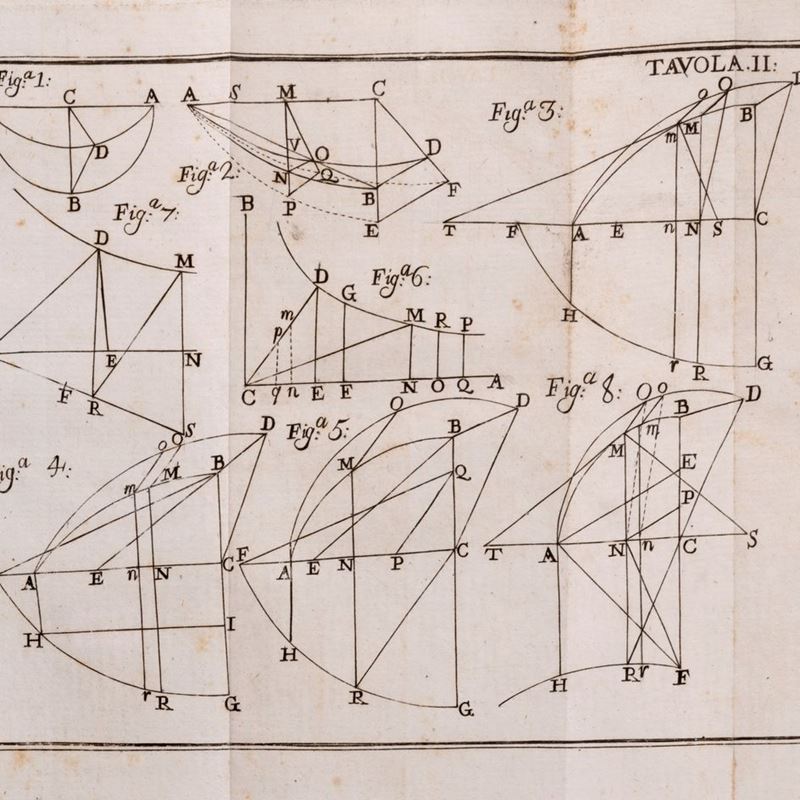 TAVOLA.II:
Fig.ª 1:
C A
D
B
Fig.ª 2:
A S M C
V O D
N Q B F
P E
Fig.ª 3:
o O D
m M B
T F A E n N S C
H
r R G
Fig.ª 7:
D M
E N
F R
S
Fig.ª 6:
B
D G
m M R P
p
C q n E F N O Q A
Fig.ª 4:
o O D
m M B
A E n N C
H I
r R G
Fig.ª 5:
O D
M B
Q
F A E N P C
H
R G
Fig.ª 8:
O o D
M m B
E
P
T A N n C S
H R r F